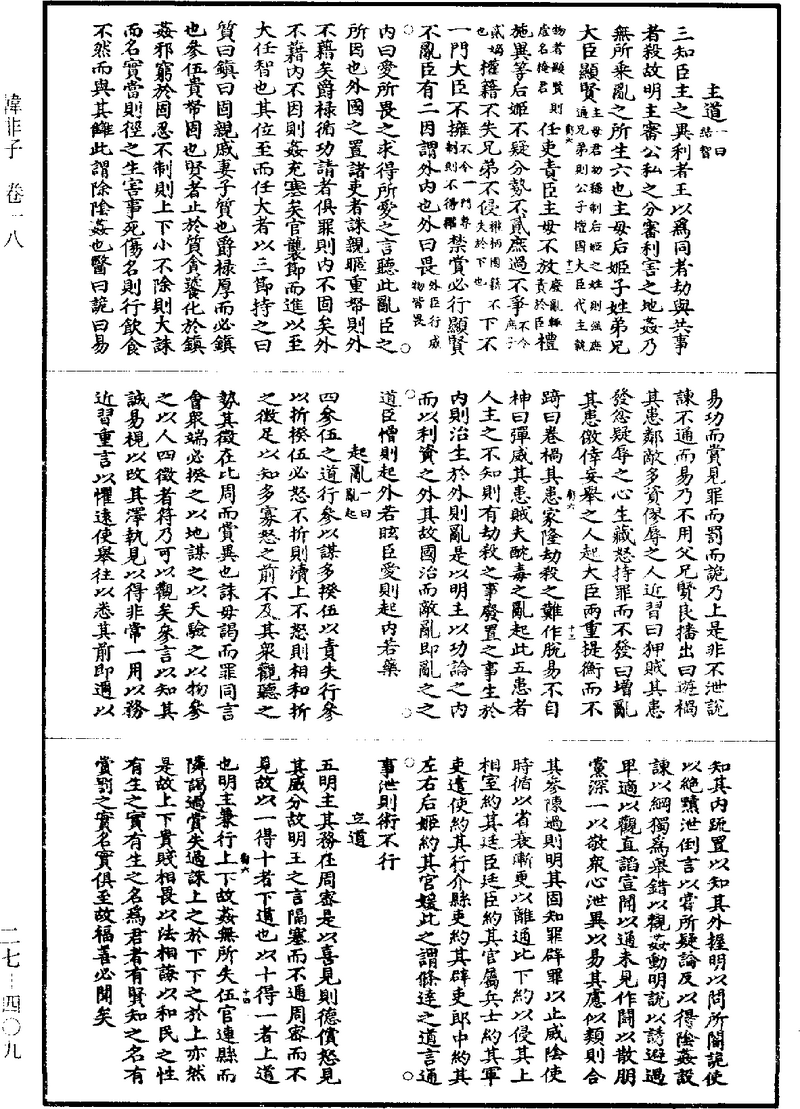 主道 一曰結智
三知臣主之異利者王以為同者劫與共事
者殺故明主審公私之分審利害之地姦乃
無所乘亂之所生六也主母后姬子姓弟兄
大臣顯賢 主母君幼稱制后姬之姓則強庶逼兄弟則公子擅國大臣代主執
物者顯賢則虛名掩君 任吏責臣主母不放 責於臣 禮
施異等后姬不疑分勢不貳庶適不爭 不令庶子
貳嫡也 權籍不失兄弟不侵 權柄國籍不失於下也 下不
一門大臣不擁 不令一門專制則不得擁 禁賞必行顯賢
不亂臣有二因謂外內也外曰畏 外臣行威物皆畏
內曰愛所畏之求得所愛之言聽此亂臣之
所因也外國之置諸吏者誅親暱重帑則外
不籍矣爵祿循功請者俱罪則內不固矣外
不籍內不因則姦充塞矣官襲節而進以至
大任智也其位至而任大者以三節持之曰
質曰鎮曰固親戚妻子質也爵祿厚而必鎮
也參伍貴帑固也賢者止於質貪饕化於鎮
姦邪窮於固忍不制則上下小不除則大誅
而名實當則徑之生害事死傷名則行飲食
不然而與其讎此謂除陰姦也醫曰詭曰易
易功而賞見罪而罰而詭乃上是非不泄說
諫不通而易乃不用父兄賢良播出曰遊禍
其患鄰敵多資僇辱之人近習曰狎賊其患
發忿疑辱之心生藏怒持罪而不發曰增亂
其患儌倖妄舉之人起大臣兩重提衡而不
踦曰卷禍其患家隆劫殺之難作脫易不自
神曰彈威其患賊夫酖毒之亂起此五患者
人主之不知則有劫殺之事廢置之事生於
內則治生於外則亂是以明主以功論之內
而以利資之外其故國治而敵亂即亂之之
道臣憎則起外若眩臣愛則起內若藥
起亂 一曰亂起
四參伍之道行參以謀多揆伍以責失行參
以折揆伍必怒不折則瀆上不怒則相和折
之徵足以知多寡怒之前不及其眾觀聽之
勢其徵在比周而賞異也誅毋謁而罪同言
會眾端必揆之以地謀之以天驗之以物參
之以人四徵者符乃可以觀矣參言以知其
誠易視以改其澤執見以得非常一用以務
近習重言以懼遠使舉往以悉其前即邇以
知其內疏置以知其外握明以問所闇詭使
以絕黷泄倒言以嘗所疑論反以得陰姦設
諫以綱獨為舉錯以觀姦動明說以誘避過
卑適以觀直諂宣聞以通未見作鬪以散朋
黨深一以敬眾心泄異以易其慮似類則合
其參陳過則明其固知罪辟罪以止威陰使
時循以省衰漸更以離通比下約以侵其上
相室約其廷臣廷臣約其官屬兵士約其軍
吏遣使約其行介縣吏約其辟吏郎中約其
左右后姬約其宮媛此之謂條達之道言通
事泄則術不行
立道
五明主其務在周密是以喜見則德償怒見
其威分故明王之言隔塞而不通周密而不
見故以一得十者下道也以十得一者上道
也明主兼行上下故姦無所失伍官連縣而
鄰謁過賞失過誅上之於下下之於上亦然
是故上下貴賤相畏以法相誨以和民之性
有生之實有生之名為君者有賢知之名有
賞罰之實名實俱至故福善必聞矣
韓非子 卷一八
二七－四〇九